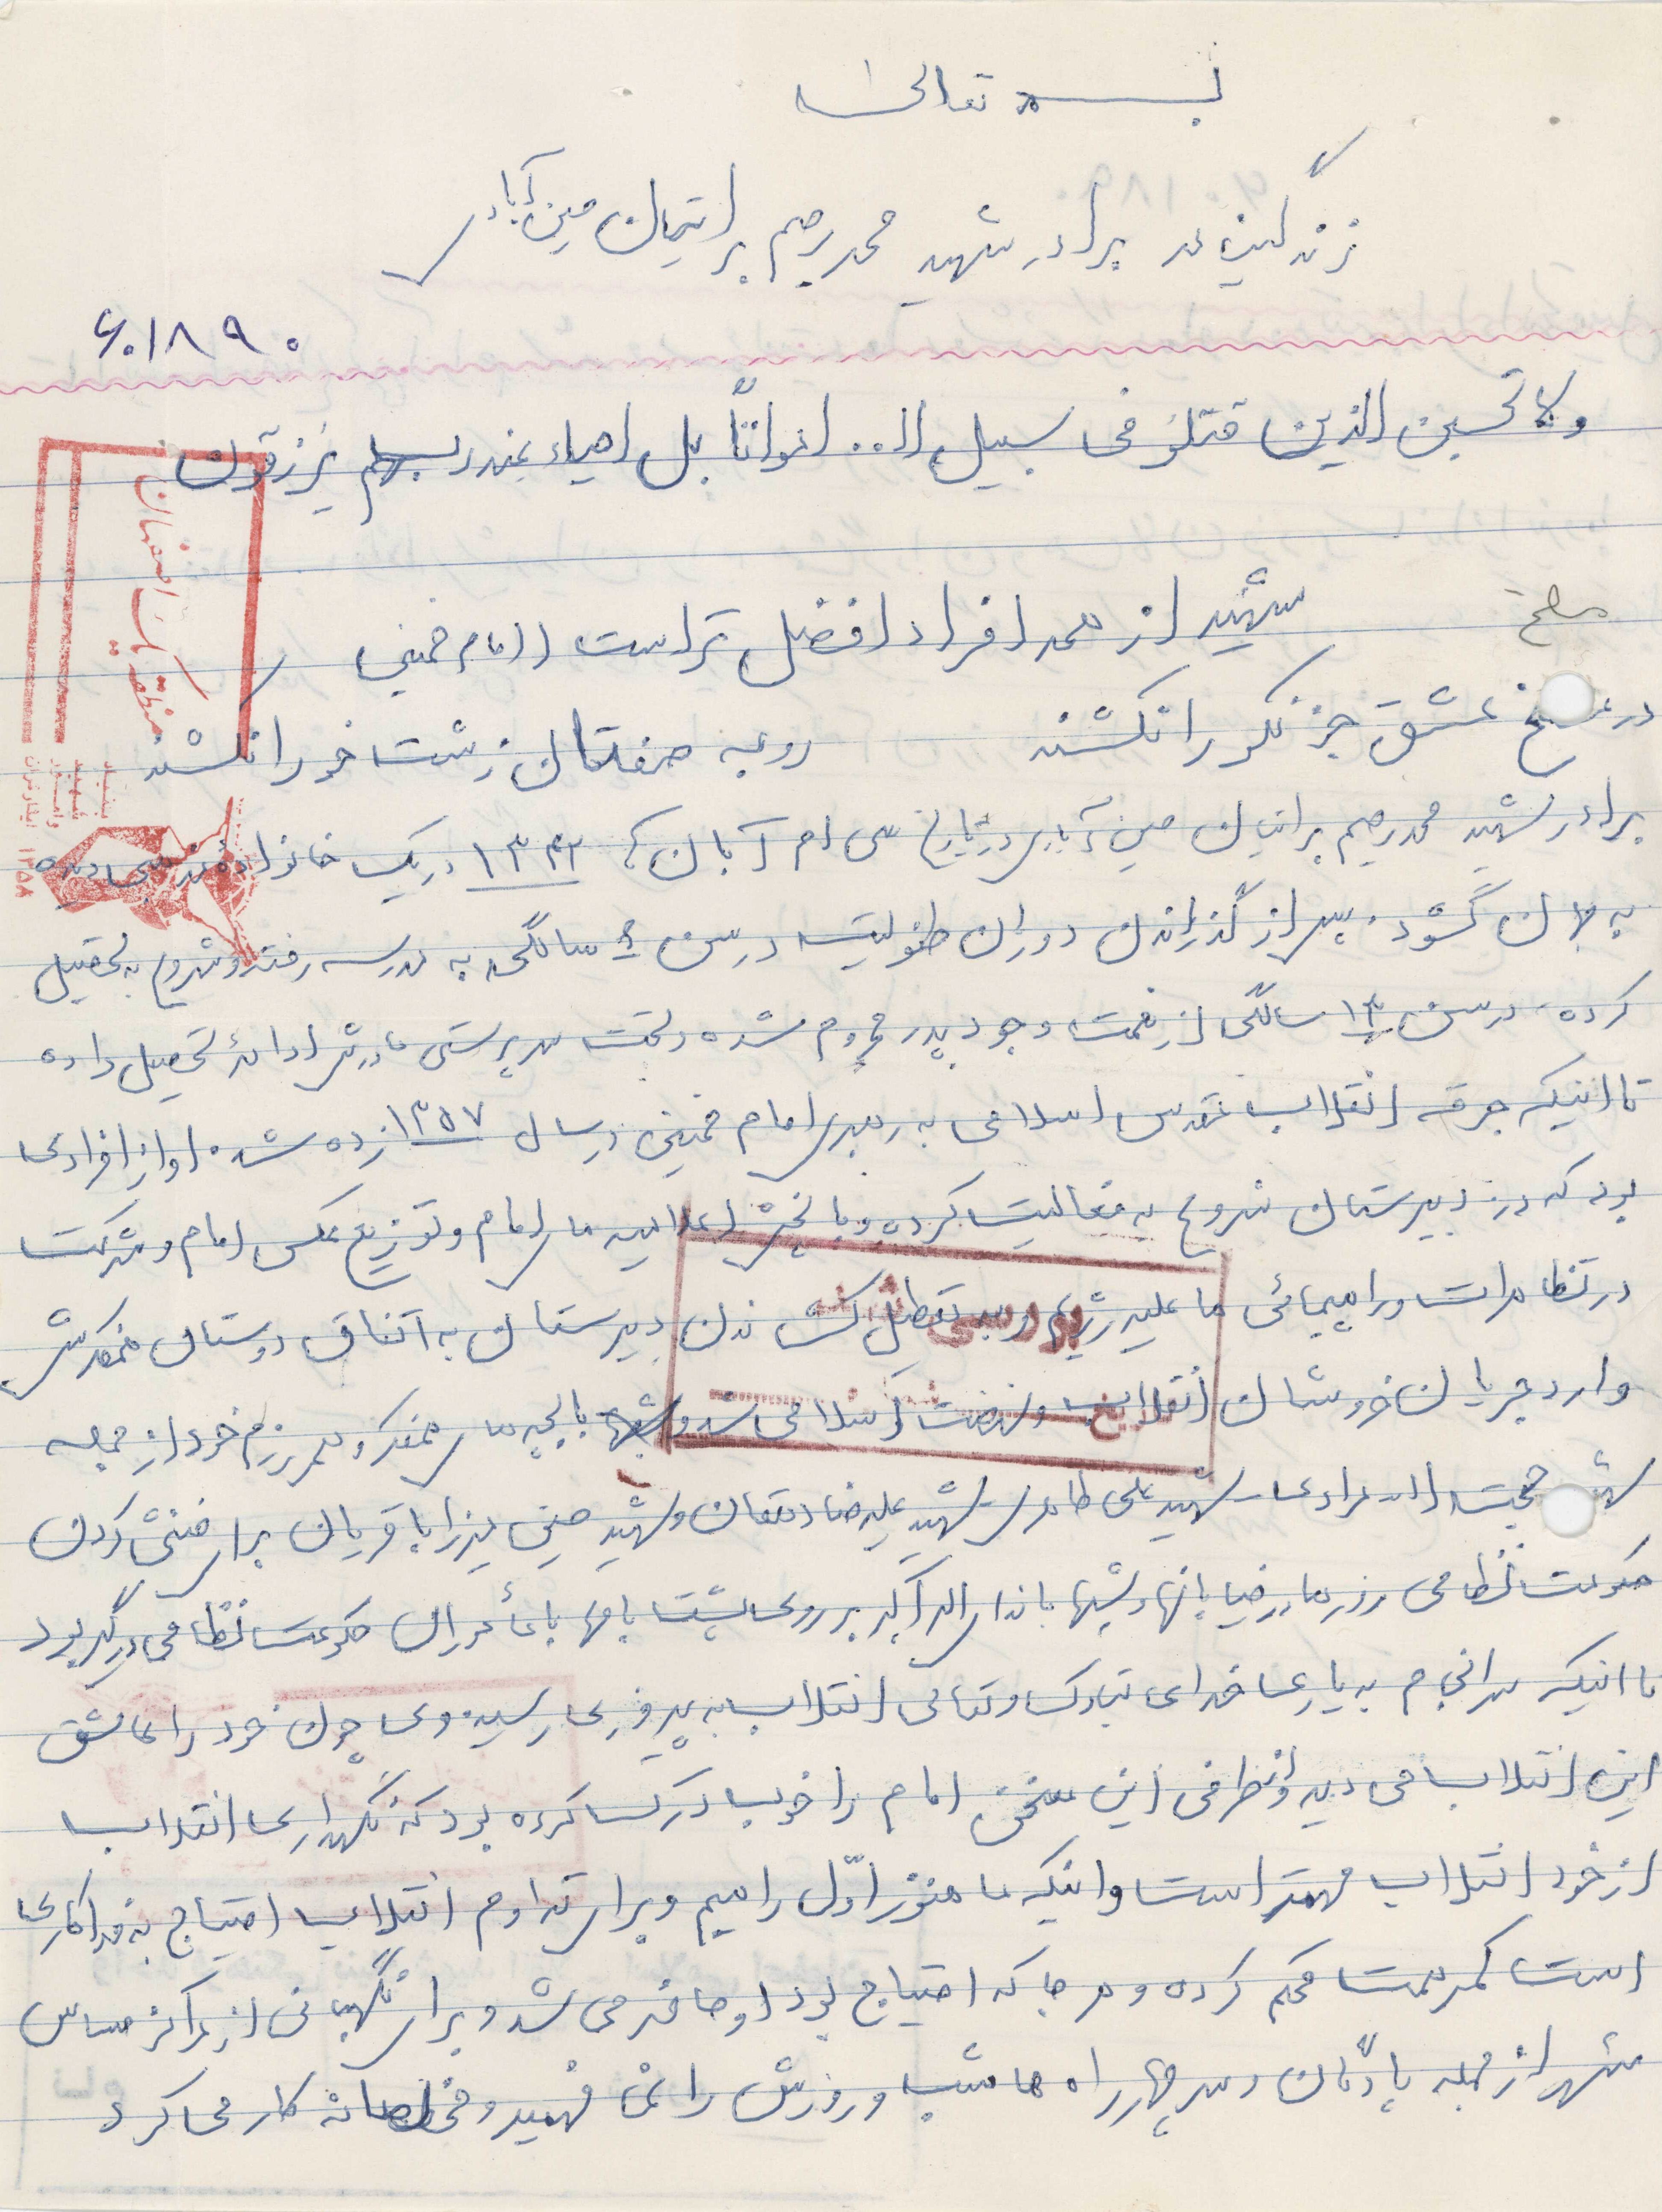 بسمه تعالی
زندگینامه برادر شهید محمد رحیم براتیان مبین آبادی
۶۰۱۸۹۰
ولا تحسبن الذین قتلو فی سبیل ا.. امواتاً بل احیاء عند ربهم یرزقون
شهید از همه افراد افضل تر است (امام خمینی
مسلخ
در مسلخ عشق جز نکو را نکشند روبه صفتان زشت خو را نکشند
برادر شهید محمد رحیم براتیان مبین آبادی در تاریخ سی ام آبان ۱۳۴۲ در یک خانواده مذهبی دیده
به جهان گشود. پس از گذراندن دوران طفولیت در سن ۶ سالگی به مدرسه رفته و شروع به تحصیل
کرده، در سن ۱۳ سالگی از نعمت وجود پدر محروم شده و تحت سرپرستی مادرش ادامهٔ تحصیل داده
تا اینکه جرقه انقلاب مقدس اسلامی به رهبری امام خمینی در سال ۱۳۵۷ زده شد. او از افرادی
بود که در دبیرستان شروع به فعالیت کرده و با پخش اعلامیه های امام و توزیع عکس امام و شرکت
در تظاهرات و راهپیمائی ها علیه رژیم و به تعطیل کشاندن دبیرستان به اتفاق دوستان همفکرش
وارد جریان خروشان انقلاب و نهضت اسلامی شد و با بچه های همفکر و همرزم خود از جمله
شهید حجت الله مرادی - شهید علی طاهری - شهید علیرضا دهقان و شهید حسین میرزا باقریان برای خنثی کردن
حکومت نظامی روزها در خیابانها و شبها با ندای الله اکبر بر روی پشت بامها با مأموران حکومت نظامی درگیر بود
تا اینکه سرانجام به یاری خدای تبارک و تعالی انقلاب به پیروزی رسید. وی چون خود را عاشق
این انقلاب می دید و از طرفی این سخن امام را خوب درک کرده بود که نگهداری انقلاب
از خود انقلاب مهمتر است و اینکه ما هنوز اوّل راهیم و برای تداوم انقلاب احتیاج به فداکاری
است کمر همت محکم کرده و هر جا که احتیاج بود او حاضر می شد و برای نگهبانی از مراکز حساس
شهر از جمله پادگان و سر چهارراه ها شب و روزش را نمی فهمید و مخلصانه کار می کرد
منطقه یک اصفهان
بنیاد
شهید
انقلاب
۱۳۵۸
بررسی شد
تاریخ